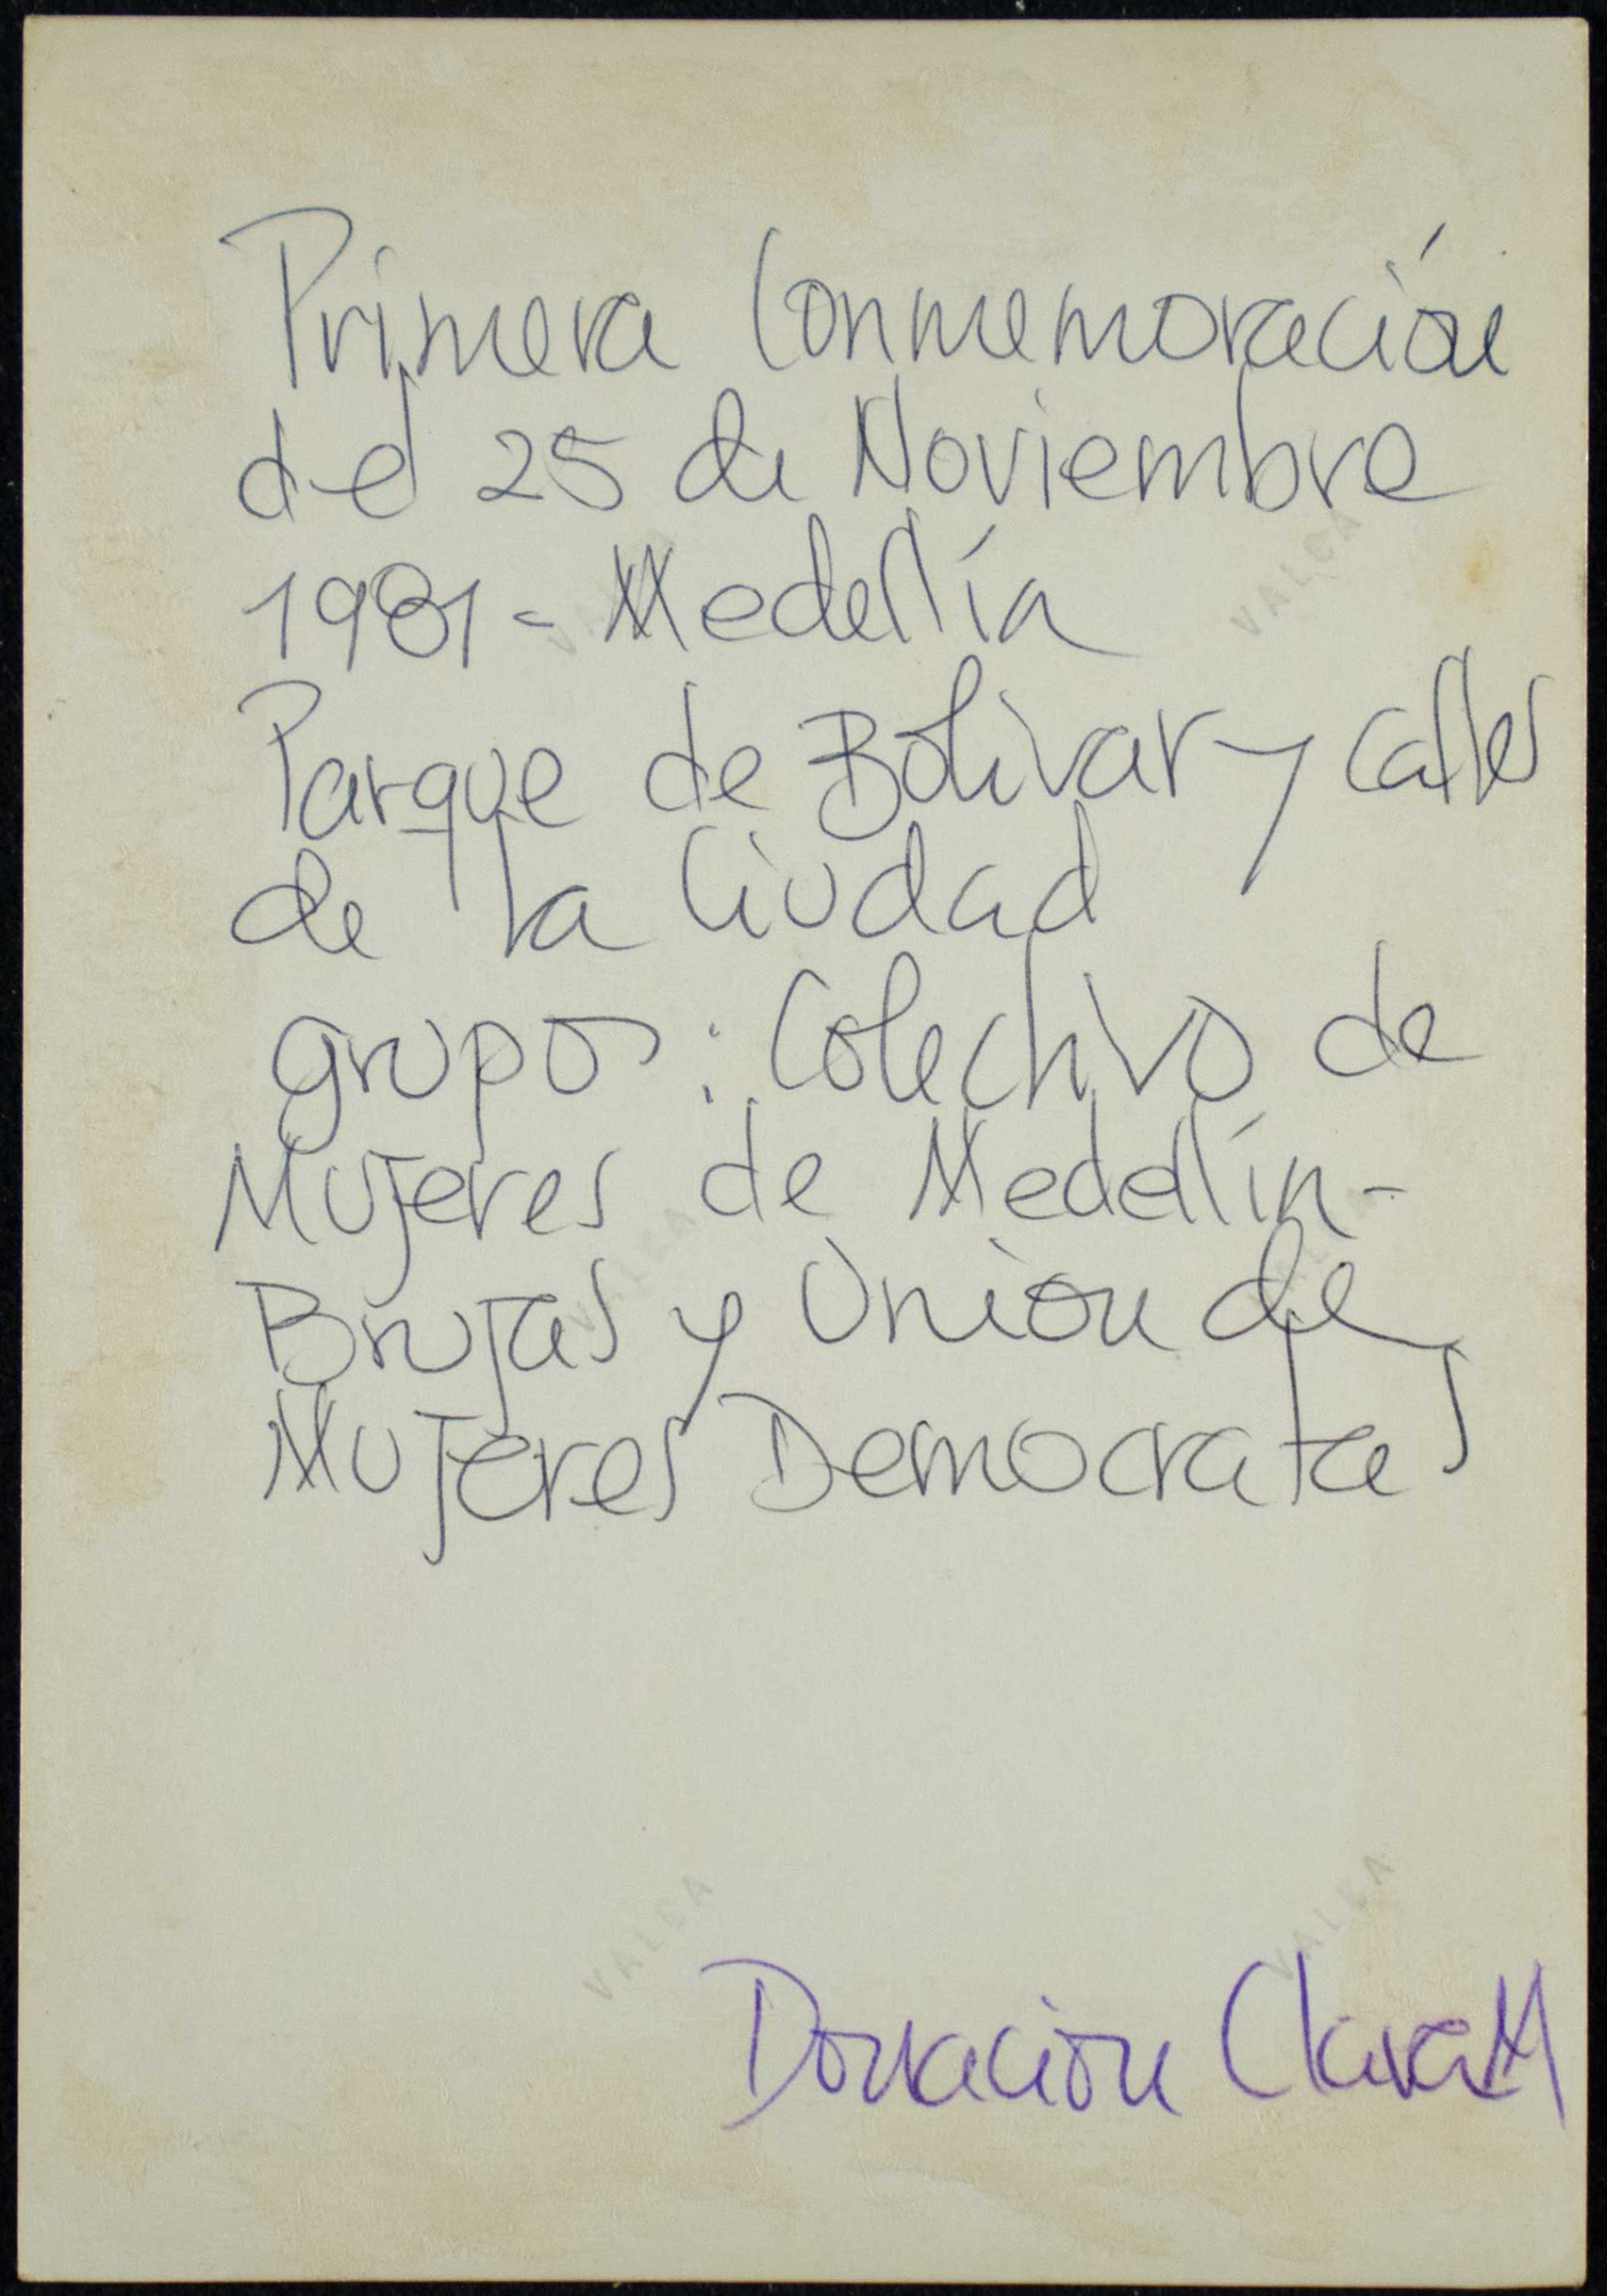 Primera Conmemoración
del 25 de Noviembre
1981 - Medellín
Parque de Bolivar y calles
de la Ciudad
grupos: Colectivo de
Mujeres de Medellín -
Brujas y Union de
Mujeres Democratas
VALCA
VALCA
VALCA
VALCA
Donacion Clara M